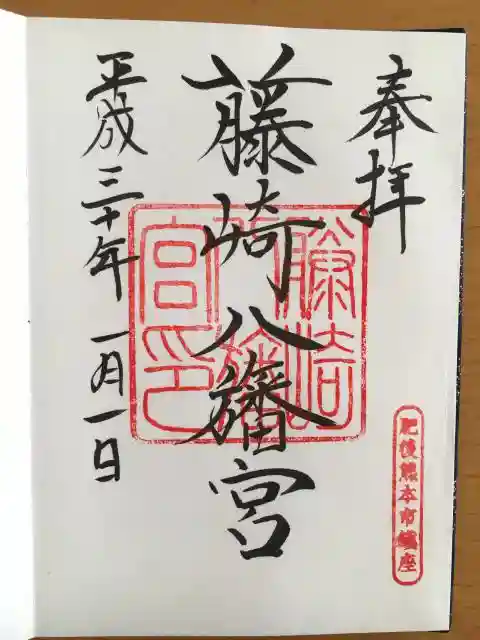 奉拝
肥後熊本市鎮座
藤崎八旛宮
藤崎八旛宮印
平成三十年一月一日